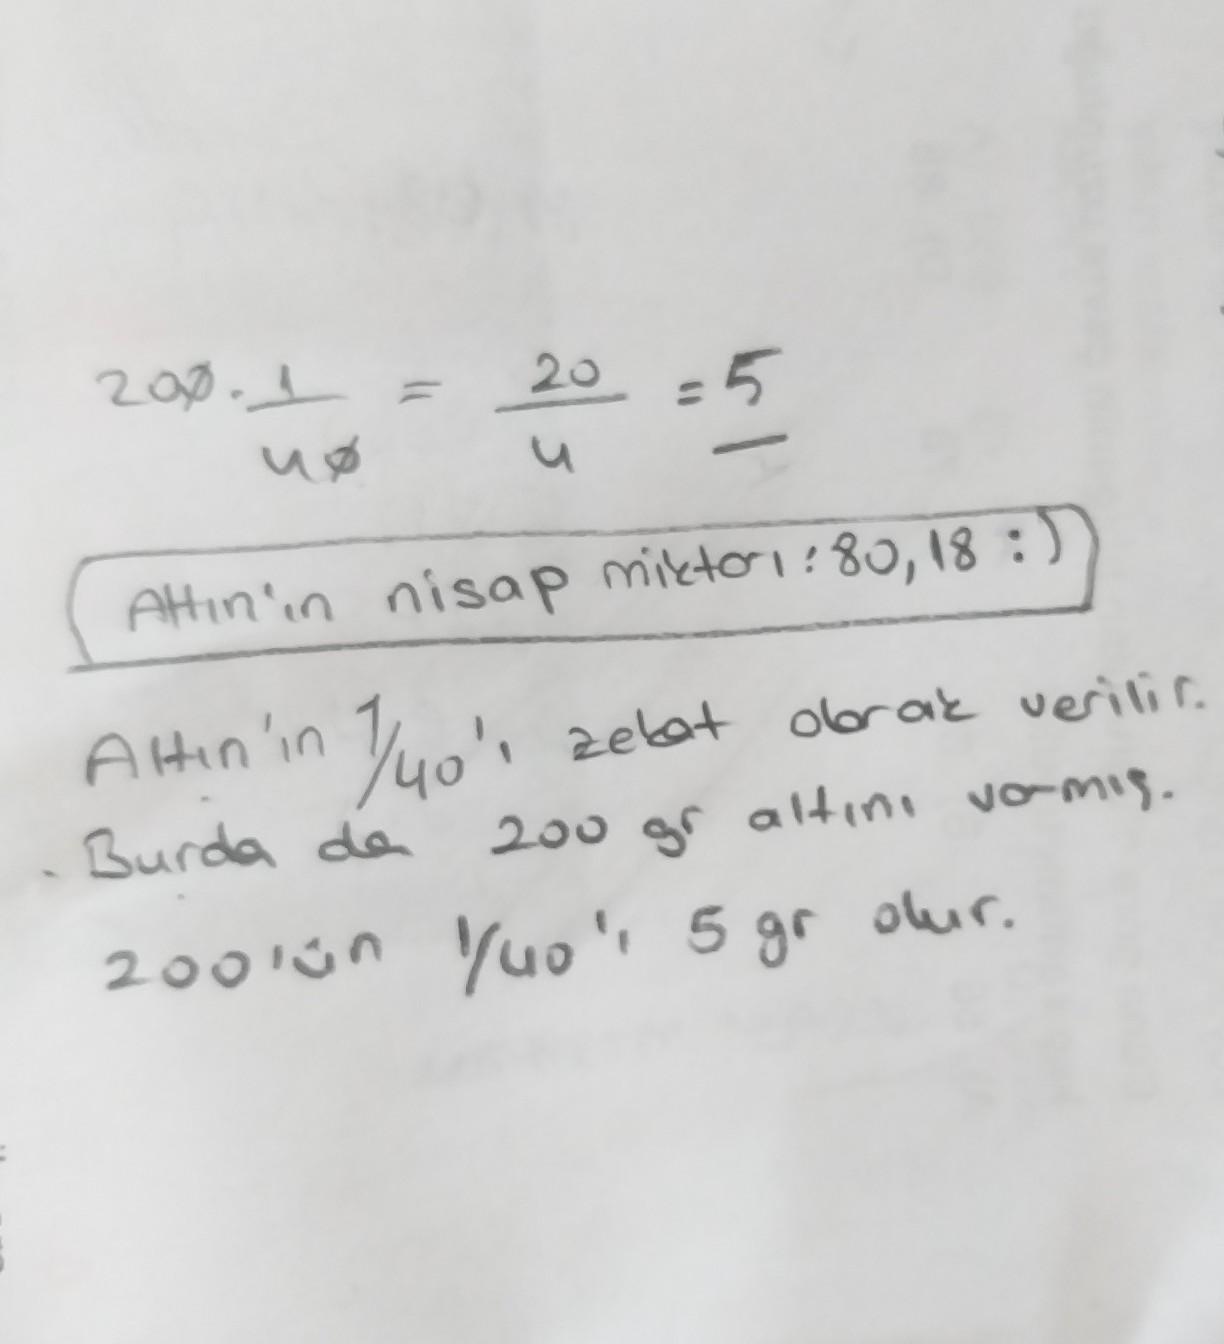 200 . 1/40 = 20/4 = 5
Altın'ın nisap miktarı : 80,18 :)
Altın'ın 1/40'ı zekat olarak verilir.
. Burda da 200 gr altını varmış.
200'ün 1/40'ı 5 gr olur.